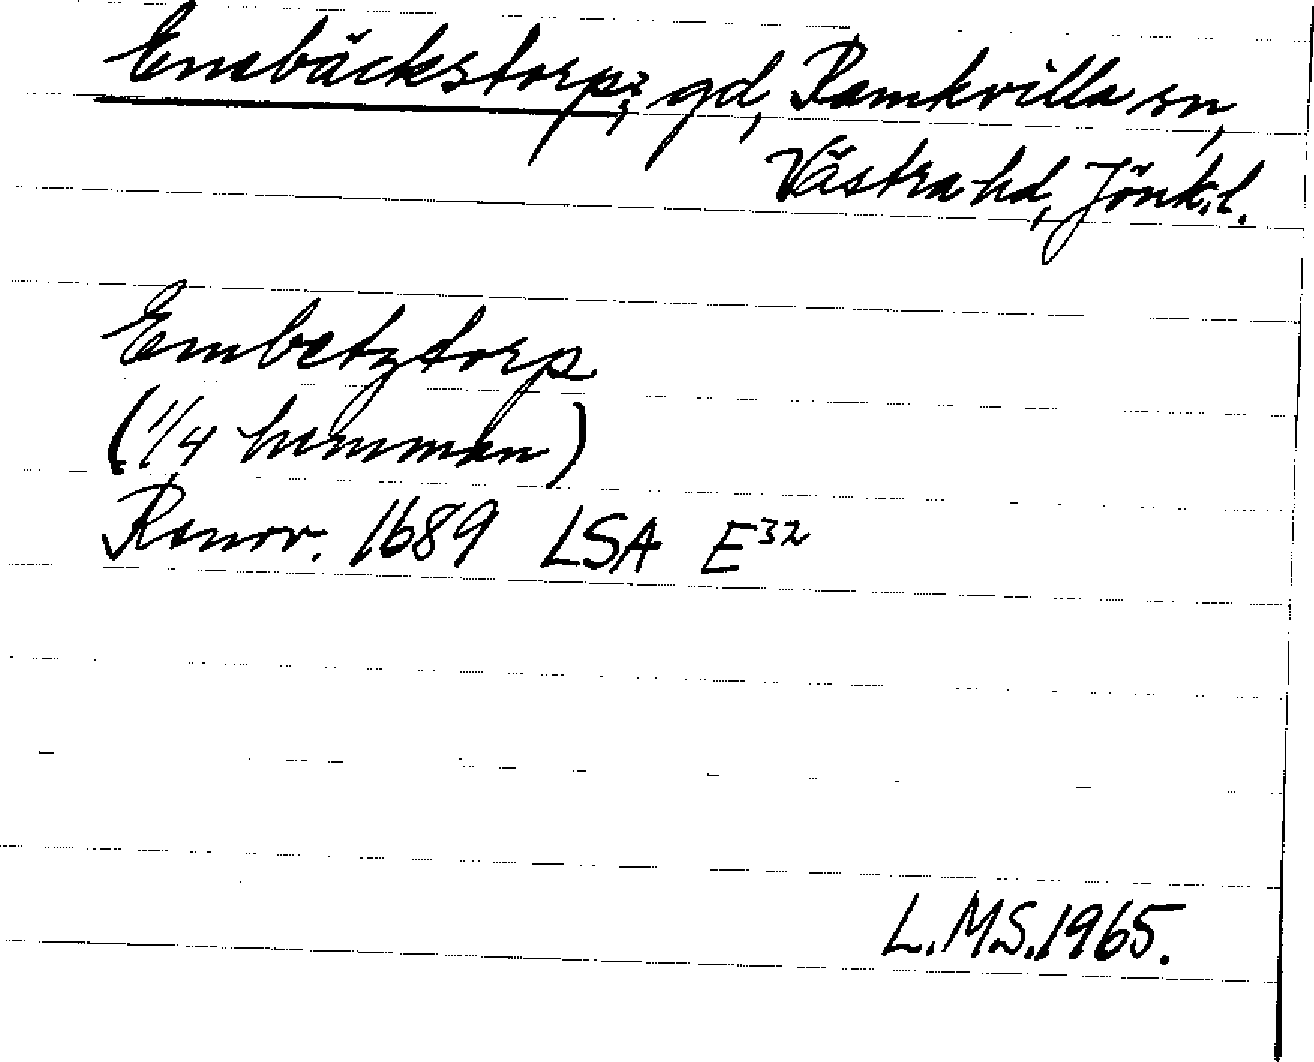 Enebäckstorp; gd, Ramkvilla sn,
Västra hd, Jönk.l.
Embetztorp
(1/4 hemman)
Renov. 1689 LSA E32
L.M.S.1965.